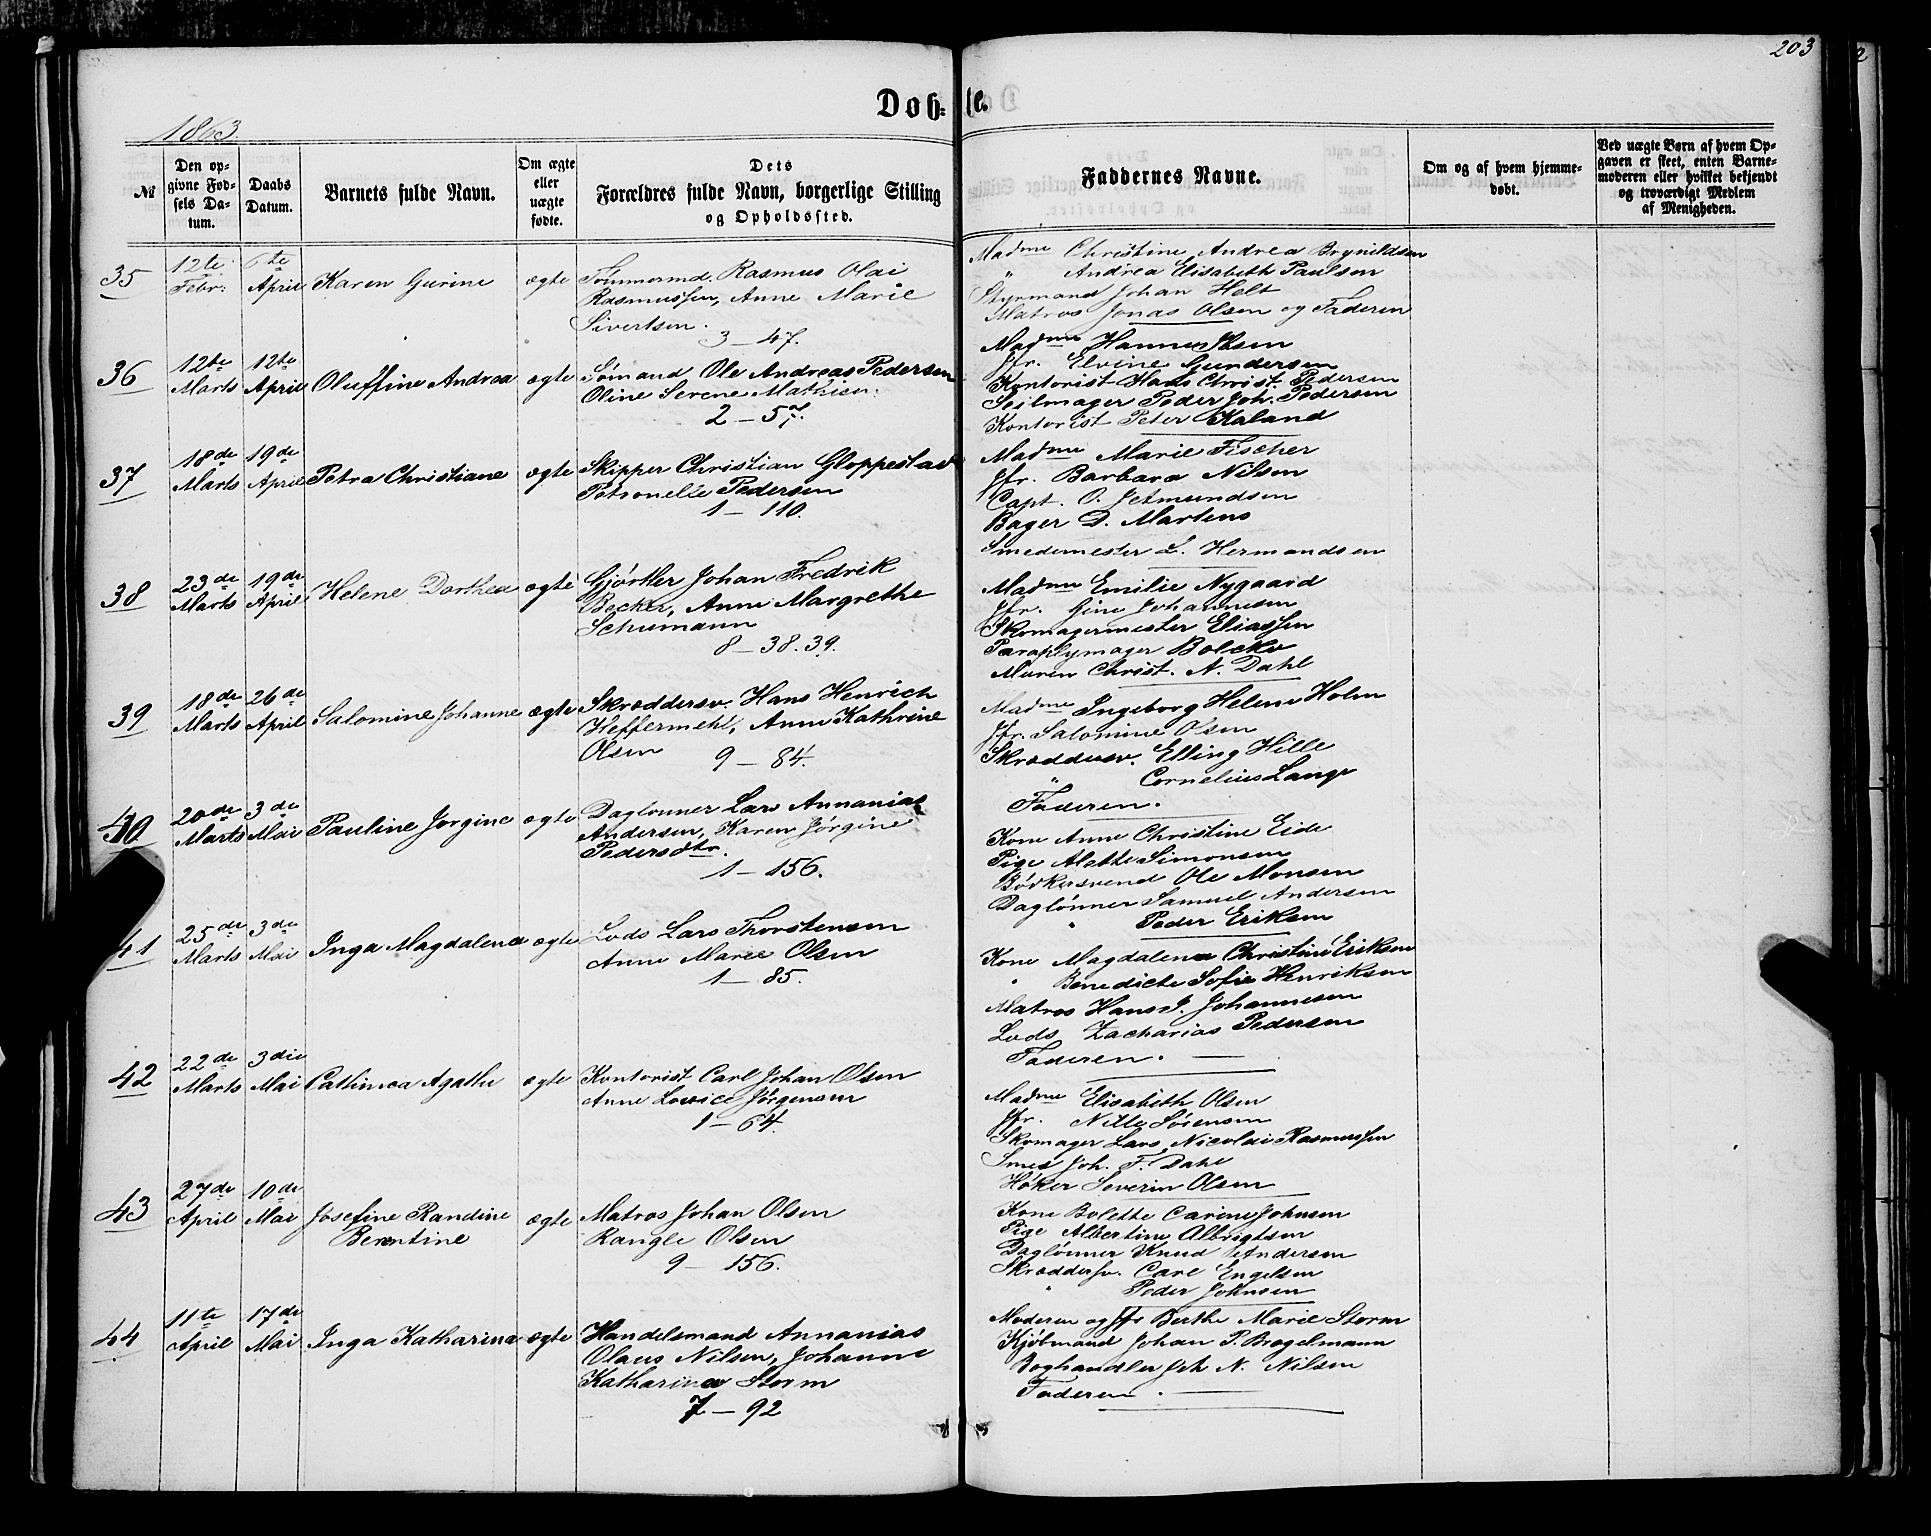 203
Døb-te.
1863.
№
Den op-
givne Fød-
sels Da-
tum.
Daabs
Datum.
Barnets fulde Navn.
Om ægte
eller
uægte
fødte.
Dets
Forældres fulde Navn, borgerlige Stilling
og Opholdssted.
Faddernes Navne.
Om og af hvem hjemme-
døbt.
Ved uægte Børn af hvem Op-
gaven er skeet, enten Barne-
moderen eller hvilket bekjendt
og troværdigt Medlem
af Menigheden.
35
12te
Febr:
6te
April
Karen Gurine
ægte
Tømmermd. Rasmus Olai
Rasmussen, Anne Marie
Sivertsen.
3 – 47.
Madme Christine Andrea Brynildsen
" Andrea Elisabeth Paulsen
Styrmand Johan Helt
Matros Jonas Olsen og Faderen
36
12te
Marts
12te
April
Oluffine Andrea
ægte
Sømand Ole Andreas Pedersen
Oline Serene Mathisen.
2 – 57.
Madme Hanne Ibsen
Jfr. Elvine Gundersen
Kontorist Hans Christ. Pedersen
Seilmager Peder Joh. Pedersen
Kontorist Peter Kaland
37
18de
Marts
19de
April
Petra Christiane
ægte
Skipper Christian Gloppestad
Petronelle Pedersen
1 – 110.
Madme Marie Fischer
Jfr. Barbara Nilsen
Capt. O. Jetmundsen
Bager D. Martens
Smedemester L. Hermandsen
38
23de
Marts
19de
April
Helene Dorthea
ægte
Gjørtler Johan Fredrik
Becker, Anne Margrethe
Schumann
8 – 38.39.
Madme Emilie Nygaard
Jfr. Gine Johannesen
Skomagermester Eliassen
Paraplymager Bolcko
Muren Christ. N. Dahl
39
18de
Marts
26de
April
Salomine Johanne
ægte
Skræddersv. Hans Henrich
Heffermehl, Anne Kathrine
Olsen
9 – 84.
Madme Ingeborg Helene Holm
Jfr. Salomine Olsen
Skræddersv. Elling Hille
" Cornelius Lange
Faderen.
40
20de
Marts
3die
Mai
Pauline Jørgine
ægte
Daglønner Lars Annanias
Andersen, Karen Jørgine
Pedersdtr.
1 – 156.
Kone Anne Christine Eide
Pige Alette Simonsen
Bødkersvend Ole Monsen
Daglønner Samuel Andersen
" Peder Eriksen
41
25de
Marts
3die
Mai
Inga Magdalena
ægte
Lods Lars Thorstensen
Anne Marie Olsen
1 – 85.
Kone Magdalena Christine Eriksen
" Benedicte Sofie Henriksen
Matros Hans J. Johannesen
Lods Zacharias Pedersen
Faderen.
42
22de
Marts
3die
Mai
Cathinca Agathe
ægte
Kontorist Carl Johan Olsen
Anne Lovice Jørgensen
1 – 64.
Madme Elisabeth Olsen
Jfr. Nille Sørensen
Skomager Lars Nicolai Rasmussen
Smed Joh. F. Dahl
Høker Severin Olsen
43
27de
April
10de
Mai
Josefine Randine
Berentine
ægte
Matros Johan Olsen
Rangle Olsen
9 – 156.
Kone Bolette Carine Johnsen
Pige Albertine Albrigtsen
Daglønner Knud Andersen
Skræddersv. Carl Engelsen
" Peder Johnsen
44
11te
April
17de
Mai
Inga Katharina
ægte
Handelsmand Annanias
Olaus Nilsen, Johanne
Katharina Storm
7 – 92
Moderen og Jfr Berthe Marie Storm
Kjøbmand Johan P. Brøgelmann
Boghandler Joh N. Nilsen
Faderen.